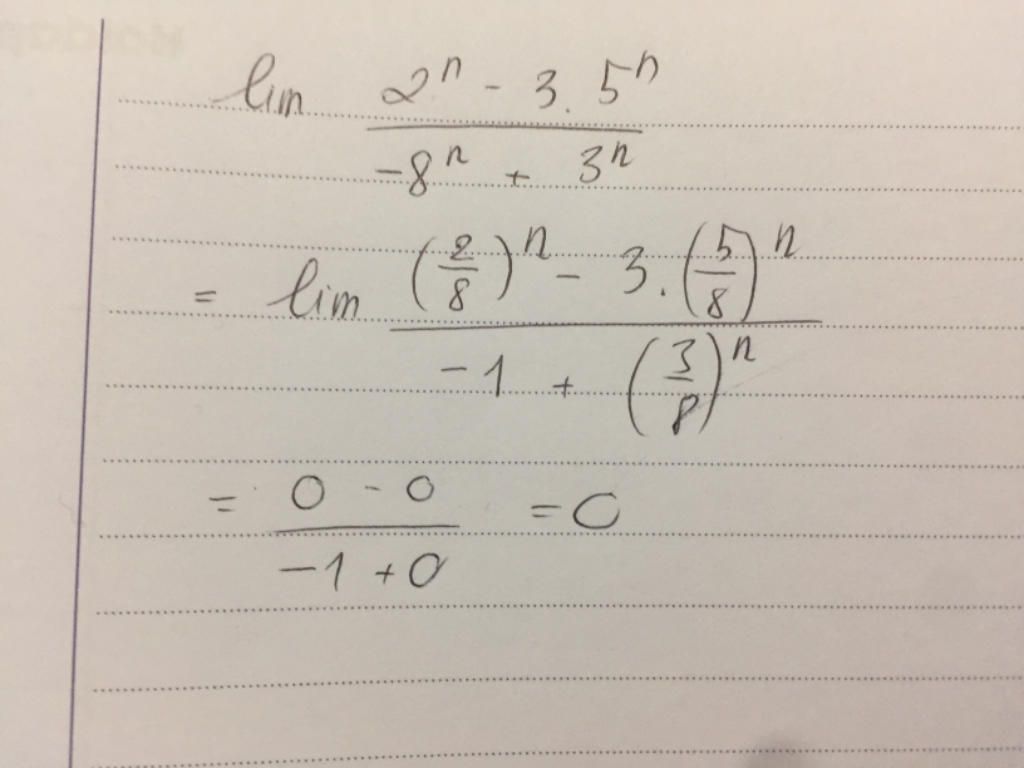 lim (2ⁿ - 3.5ⁿ)/(-8ⁿ + 3ⁿ)
= lim ((2/8)ⁿ - 3.(5/8)ⁿ)/(-1 + (3/8)ⁿ)
= (0 - 0)/(-1 + 0) = 0